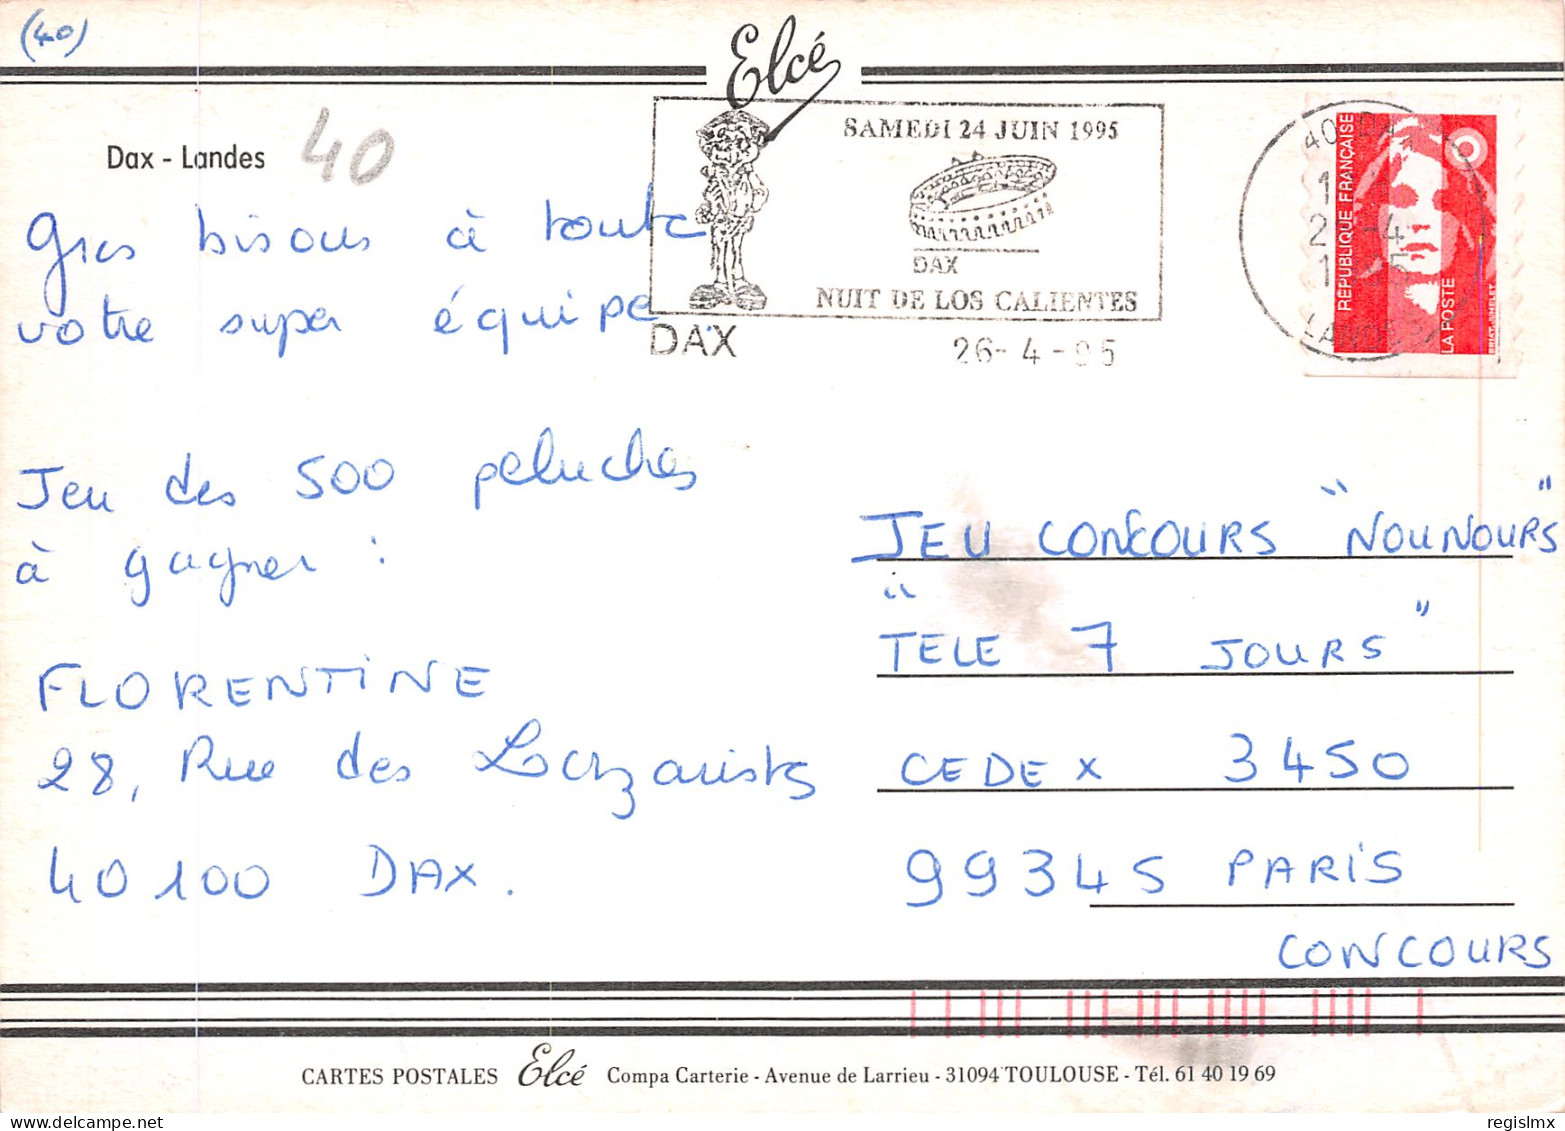 (40)
Elcé
Dax - Landes
40
SAMEDI 24 JUIN 1995
DAX
NUIT DE LOS CALIENTES
DAX
26-4-95
REPUBLIQUE FRANÇAISE
LA POSTE
Gros bisous à toute
votre super équipe
Jeu des 500 peluches
à gagner :
FLORENTINE
28, Rue des Lazaristes
40 100 DAX.
JEU CONCOURS "NOUNOURS"
"TELE 7 JOURS"
CEDEX 3450
99345 PARIS
CONCOURS
CARTES POSTALES Elcé Compa Carterie - Avenue de Larrieu - 31094 TOULOUSE - Tél. 61 40 19 69
regislmx